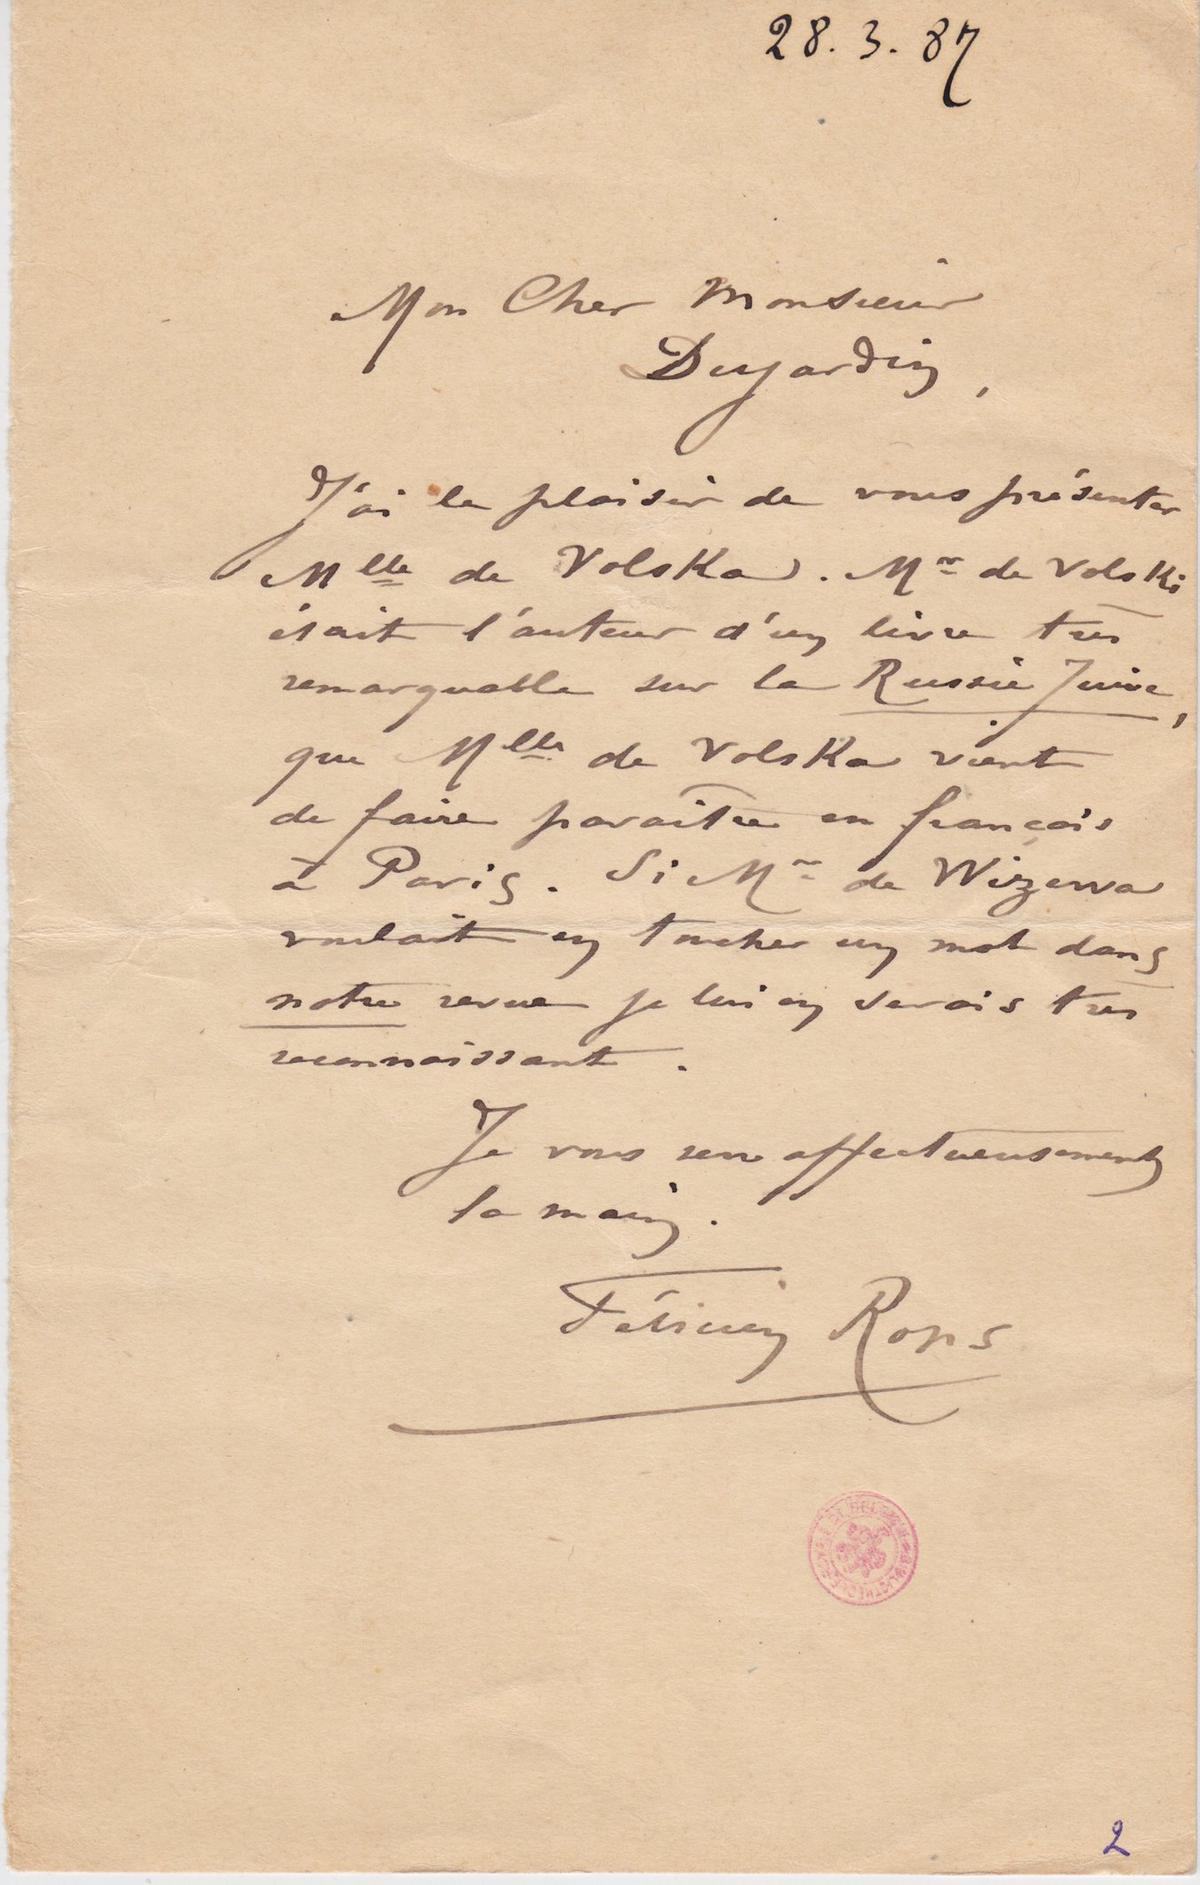 28. 3. 87
Mon Cher Monsieur
Dujardin,
J'ai le plaisir de vous présenter
Mlle de Volska. Mr de Volski
était l'auteur d'un livre très
remarquable sur la Russie Juive,
que Mlle de Volska vient
de faire paraître en français
à Paris. Si Mr de Wizewa
voulait en toucher un mot dans
notre revue je lui en serais très
reconnaissant.
Je vous serre affectueusement
la main.
Félicien Rops
2